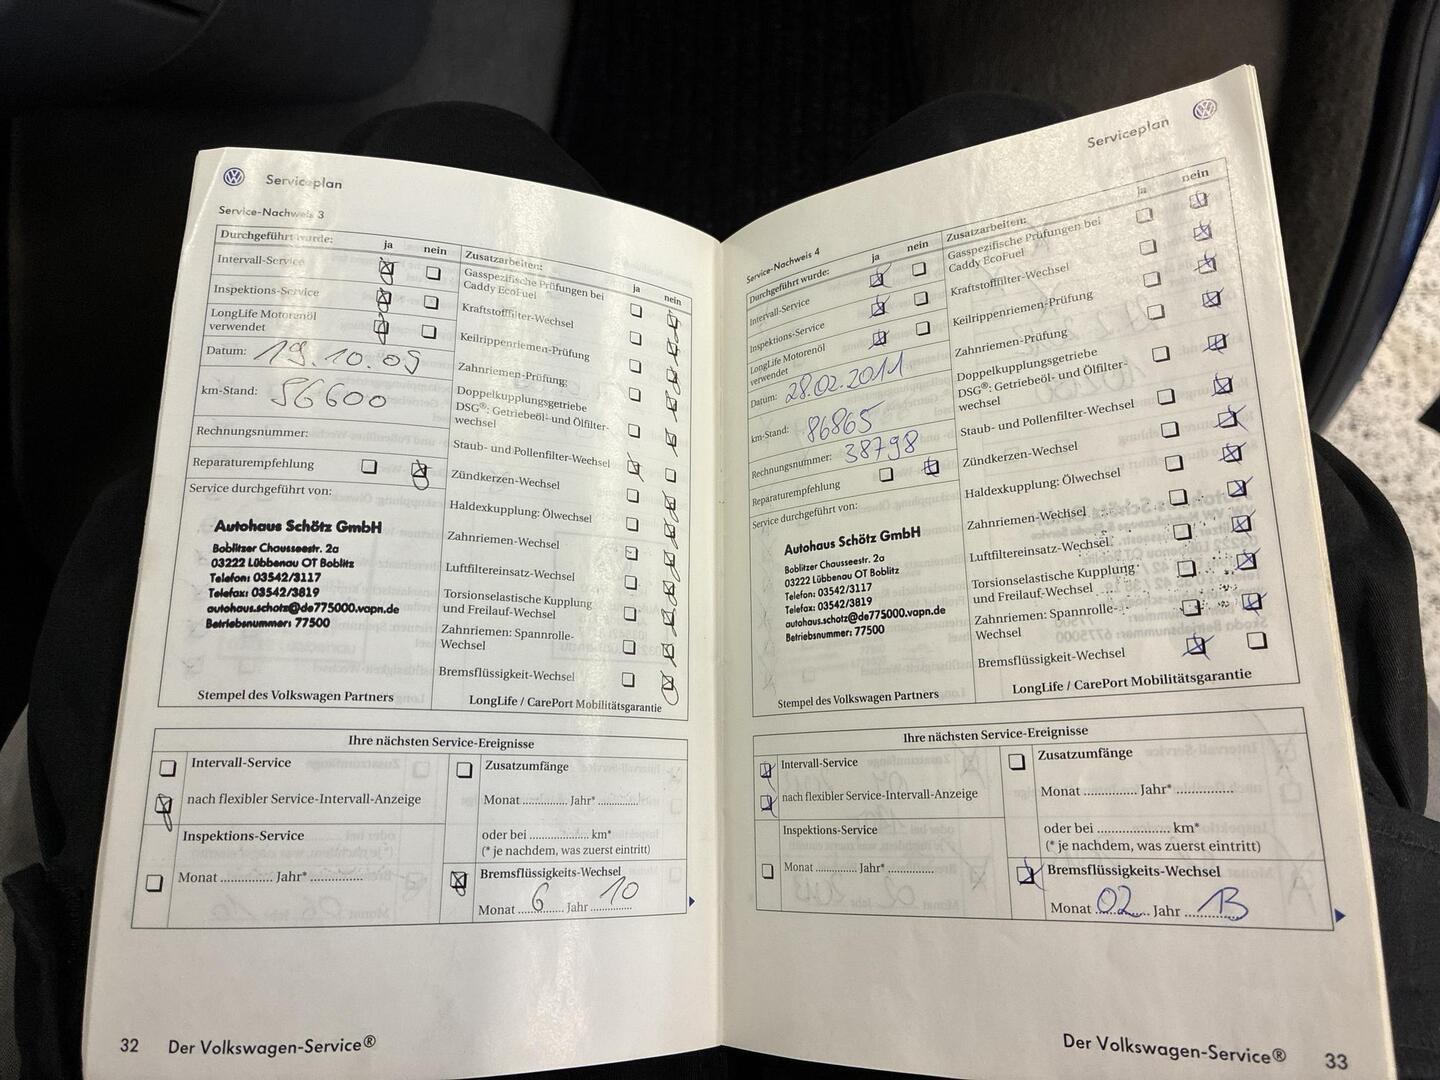 Serviceplan
Service-Nachweis 3
Durchgeführt wurde: ja nein
Intervall-Service
Inspektions-Service
LongLife Motorenöl
verwendet
Datum: 19.10.09
km-Stand: 56600
Rechnungsnummer:
Reparaturempfehlung
Service durchgeführt von:
Autohaus Schötz GmbH
Boblitzer Chausseestr. 2a
03222 Lübbenau OT Boblitz
Telefon: 03542/3117
Telefax: 03542/3819
autohaus.schotz@de775000.vapn.de
Betriebsnummer: 77500
Stempel des Volkswagen Partners
Zusatzarbeiten:
ja nein
Gasspezifische Prüfungen bei
Caddy EcoFuel
Kraftstofffilter-Wechsel
Keilrippenriemen-Prüfung
Zahnriemen-Prüfung
Doppelkupplungsgetriebe
DSG®: Getriebeöl- und Ölfilter-
wechsel
Staub- und Pollenfilter-Wechsel
Zündkerzen-Wechsel
Haldexkupplung: Ölwechsel
Zahnriemen-Wechsel
Luftfiltereinsatz-Wechsel
Torsionselastische Kupplung
und Freilauf-Wechsel
Zahnriemen: Spannrolle-
Wechsel
Bremsflüssigkeit-Wechsel
LongLife / CarePort Mobilitätsgarantie
Ihre nächsten Service-Ereignisse
Intervall-Service
nach flexibler Service-Intervall-Anzeige
Inspektions-Service
Monat .............. Jahr* ..............
Zusatzumfänge
Monat .............. Jahr* ..............
oder bei .................... km*
(* je nachdem, was zuerst eintritt)
Bremsflüssigkeits-Wechsel
Monat 6 Jahr 10
32 Der Volkswagen-Service®
Serviceplan
Service-Nachweis 4
Durchgeführt wurde: ja nein
Intervall-Service
Inspektions-Service
LongLife Motorenöl
verwendet
Datum: 28.02.2011
km-Stand: 86865
Rechnungsnummer: 38798
Reparaturempfehlung
Service durchgeführt von:
Autohaus Schötz GmbH
Boblitzer Chausseestr. 2a
03222 Lübbenau OT Boblitz
Telefon: 03542/3117
Telefax: 03542/3819
autohaus.schotz@de775000.vapn.de
Betriebsnummer: 77500
Stempel des Volkswagen Partners
Zusatzarbeiten: ja nein
Gasspezifische Prüfungen bei
Caddy EcoFuel
Kraftstofffilter-Wechsel
Keilrippenriemen-Prüfung
Zahnriemen-Prüfung
Doppelkupplungsgetriebe
DSG®: Getriebeöl- und Ölfilter-
wechsel
Staub- und Pollenfilter-Wechsel
Zündkerzen-Wechsel
Haldexkupplung: Ölwechsel
Zahnriemen-Wechsel
Luftfiltereinsatz-Wechsel
Torsionselastische Kupplung
und Freilauf-Wechsel
Zahnriemen: Spannrolle-
Wechsel
Bremsflüssigkeit-Wechsel
LongLife / CarePort Mobilitätsgarantie
Ihre nächsten Service-Ereignisse
Intervall-Service
nach flexibler Service-Intervall-Anzeige
Inspektions-Service
Monat .............. Jahr* ..............
Zusatzumfänge
Monat .............. Jahr* ..............
oder bei .................... km*
(* je nachdem, was zuerst eintritt)
Bremsflüssigkeits-Wechsel
Monat 02 Jahr 13
Der Volkswagen-Service® 33